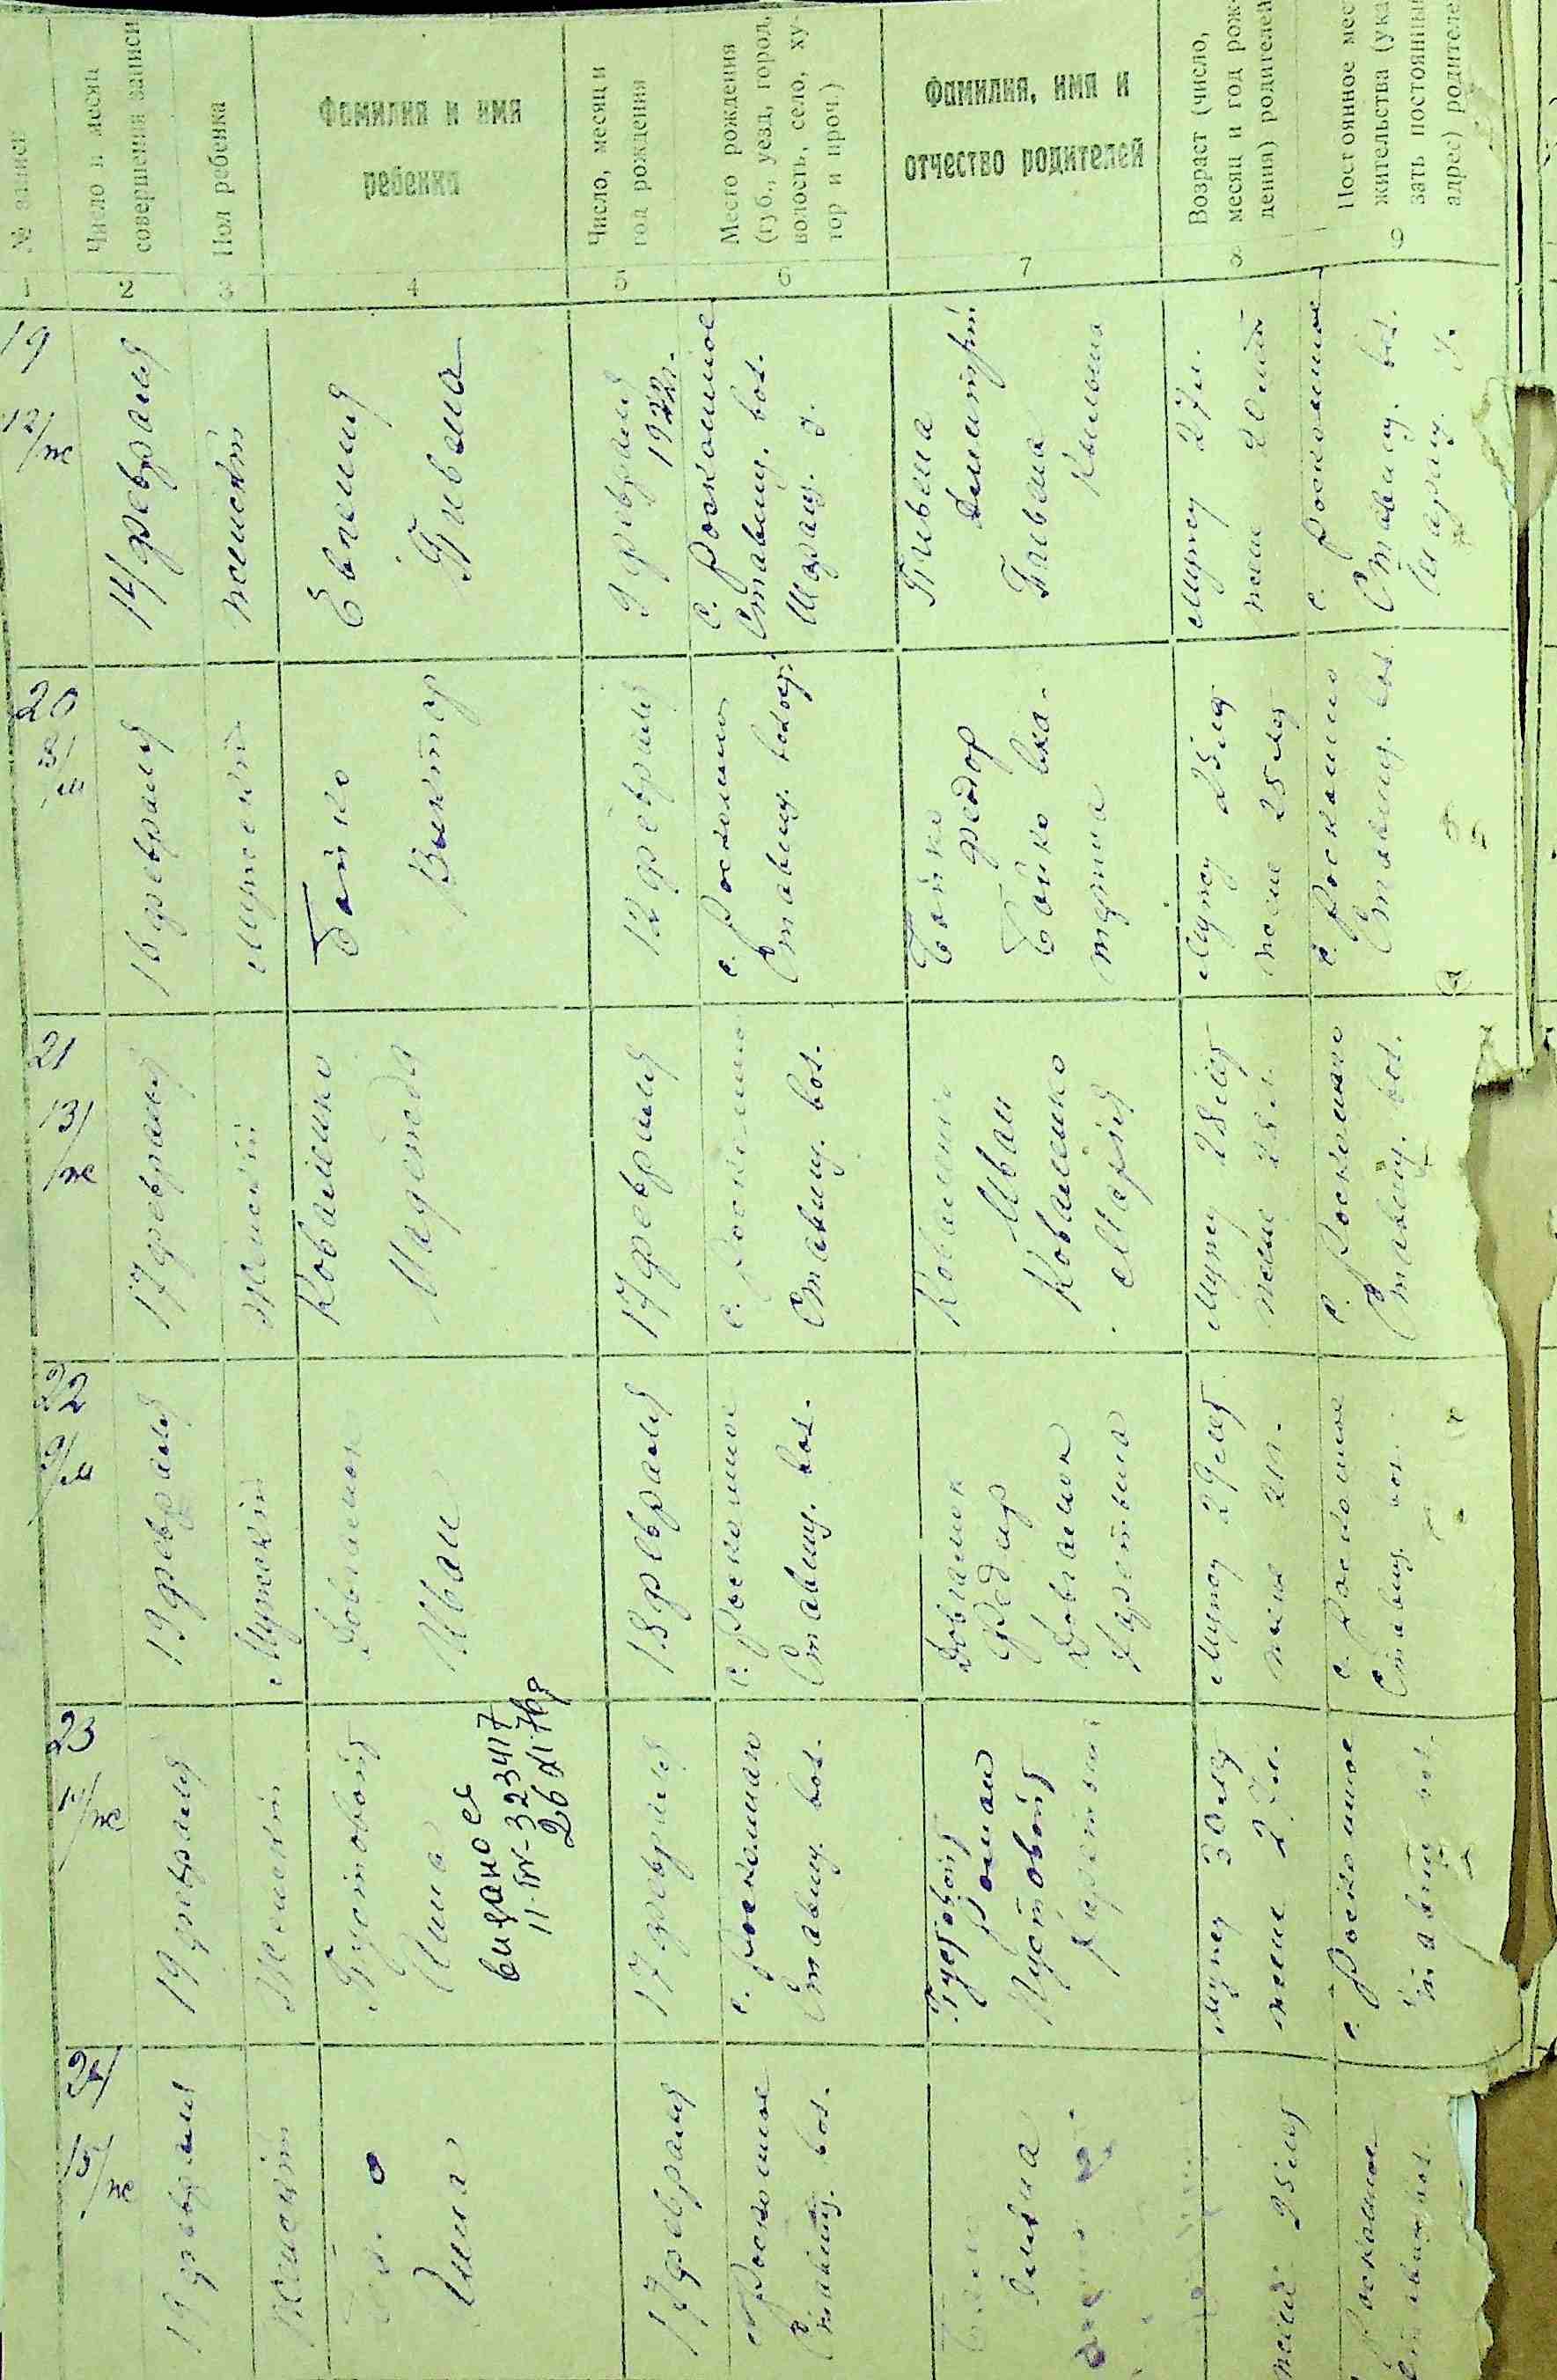 № записи
Число и месяц
совершения записи
Пол ребенка
Фамилия и имя
ребенка
Число, месяц и
год рождения
Место рождения
(губ., уезд, город,
волость, село, ху-
тор и проч.)
Фамилия, имя и
отчество родителей
Возраст (число,
месяц и год рож-
дения) родителей
Постоянное мес
жительства (ука
зать постоянный
адрес) родителе
1
2
3
4
5
6
7
8
9
19
12/ж
14/февраля
женский
Евгения
9 февраля
1922г.
с. Роскошное
Ставищ. вол.
у.
Дмитрий
Мужу 27 л.
жене 20 лет
с. Роскошное
Ставищ. вол.
у.
20
8/м
16 февраля
мужский
Бойко
Виктор
12 февраля
с. Роскошно
Ставищ. волос.
Бойко
Федор
Бойко Ека-
терина
Мужу 25 лет
жене 25 лет
с. Роскошно
Ставищ. вол.
21
13/ж
17 февраля
Женский
Коваленко
Надежда
17 февраля
с. Роскошно
Ставищ. вол.
Коваленко
Иван
Коваленко
Мария
Мужу 28 лет
жене 28 л.
с. Роскошно
Ставищ. вол.
22
9/м
19 февраля
Мужский
Довгалюк
Иван
18 февраля
с. Роскошное
Ставищ. вол.
Довгалюк
Федир
Довгалюк
Харитина
Мужу 29 лет
жене
с. Роскошное
Ставищ. вол.
23
14/ж
19 февраля
Женский
Пустовойт
Анна
видано св
11-БК-323417
26 XI 76р
17 февраля
с. Роскошно
Ставищ. вол.
Пустовойт
Роман
Пустовойт
Харитина
Мужу 30 лет
жене 27 л.
с. Роскошное
Ставищ. вол.
24
15/ж
19 февраля
Женский
Анна
17 февраля
с. Роскошное
Ставищ. вол.
жене 25 лет
Роскошное
Ставищ. вол.